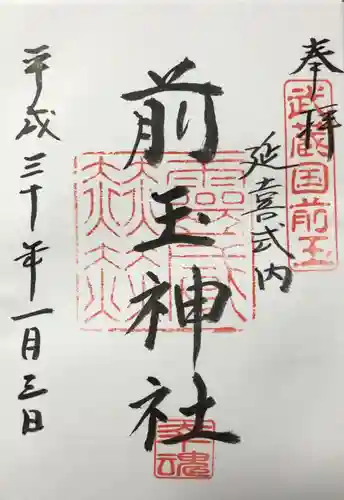 奉拝
武蔵国前玉
延喜式内
前玉神社
平成三十年一月三日